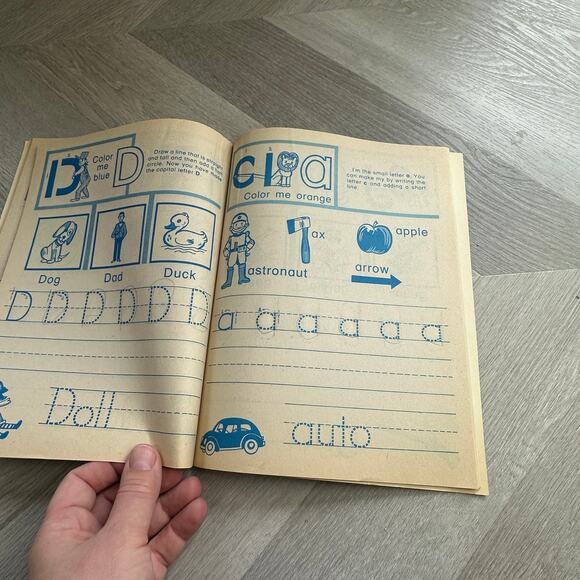 D
Color
me
blue
D
Draw a line that is straight
and tall and then add a half
circle. Now you have made
the capital letter D.
Dog
Dad
Duck
D D D D D D
Doll
c l a
Color me orange
I'm the small letter a. You
can make my by writing the
letter c and adding a short
line.
astronaut
ax
apple
arrow
a a a a a a
auto